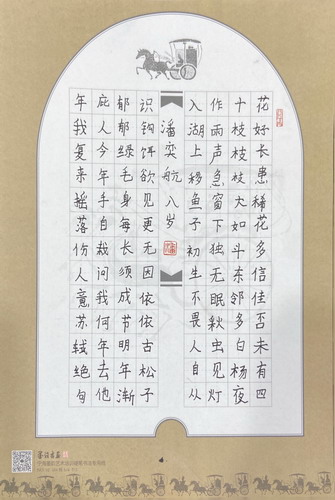 花好长患稀花多信佳否未有四
十枝枝枝大如斗东邻多白杨夜
作雨声急窗下独无眠秋虫见灯
入湖上移鱼子初生不畏人自从
潘奕航八岁
识钩饵欲见更无因依依古松子
郁郁绿毛身每长须成节明年渐
庇人今年手自栽问我何年去他
年我复来摇落伤人意苏轼绝句